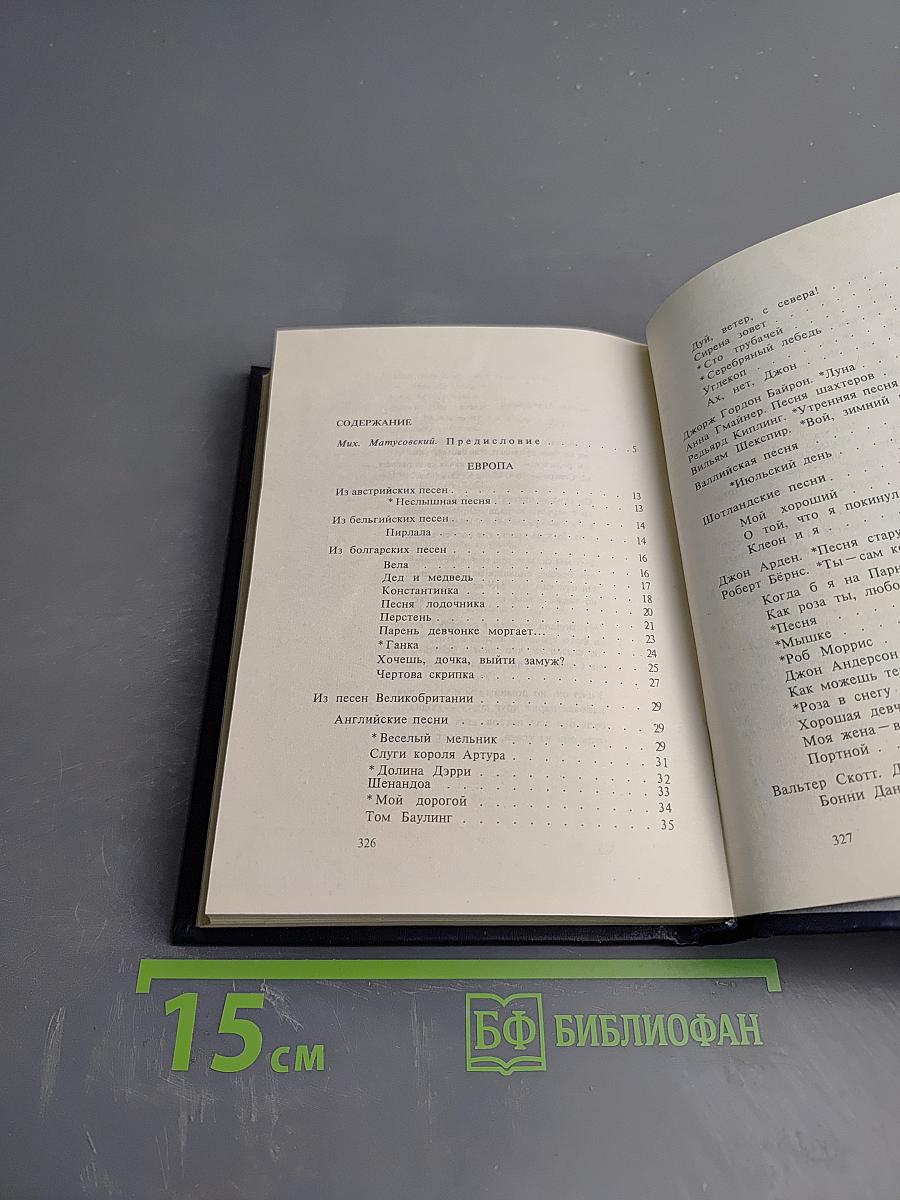 СОДЕРЖАНИЕ
Мих. Матусовский. Предисловие . . . . . . 5
ЕВРОПА
Из австрийских песен . . . . . . 13
* Неслышная песня . . . . . . 13
Из бельгийских песен . . . . . . 14
Пирлала . . . . . . 14
Из болгарских песен . . . . . . 16
Вела . . . . . . 16
Дед и медведь . . . . . . 17
Константинка . . . . . . 18
Песня лодочника . . . . . . 20
Перстень . . . . . . 21
Парень девчонке моргает... . . . . . . 23
* Ганка . . . . . . 24
Хочешь, дочка, выйти замуж? . . . . . . 25
Чертова скрипка . . . . . . 27
Из песен Великобритании . . . . . . 29
Английские песни . . . . . . 29
* Веселый мельник . . . . . . 29
Слуги короля Артура . . . . . . 31
* Долина Дэрри . . . . . . 32
Шенандоа . . . . . . 33
* Мой дорогой . . . . . . 34
Том Баулинг . . . . . . 35
326
Дуй, ветер, с севера! . . . .
Сирена зовет . . . . .
* Сто трубачей . . . .
* Серебряный лебедь . . . .
Углекоп . . . . .
Ах, нет, Джон . . . .
Джорж Гордон Байрон. *Луна . . .
Анна Гмайнер. Песня шахтеров . . .
Редьярд Киплинг. *Утренняя песня
Вильям Шекспир. *Вой, зимний
Валлийская песня . . . .
*Июльский день . . . .
Шотландские песни . . . .
Мой хороший . . . .
О той, что я покинул
Клеон и я . . . .
Джон Арден. *Песня
Роберт Бёрнс. *Ты — сам
Когда б я на
Как роза ты,
*Песня . . .
*Мышке . . .
*Роб Моррис . . .
Джон Андерсон
Как можешь
*Роза в снегу . .
Хорошая
Моя жена —
Портной . .
Вальтер Скотт.
Бонни
327
15 см
БФ БИБЛИОФАН